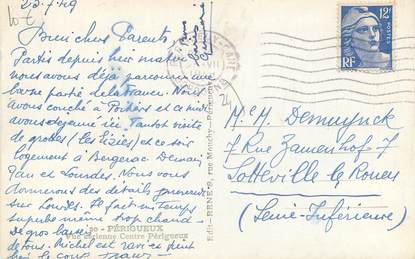 25-7-49
Bien chers Parents
Partis depuis hier matin
nous avons déjà parcouru une
bonne partie de la France. Nous
avons couché à Poitiers et ce midi
avons déjeuné ici. Tantôt visite
de grottes (les Eyzies) et ce soir
logement à Bergerac Demain
Pau et Lourdes. Nous vous
donnerons des détails
sur Lourdes. Il fait un temps
superbe même trop chaud
De gros baisers
de tous. Michel est ravi et peut
le cour
20 - PÉRIGUEUX
Vue aérienne Centre Périgueux
12F
POSTES
RF
M. & Mme Demuynck
7 Rue Zamenhof 7
Sotteville le Rouen
(Seine-Inférieure)